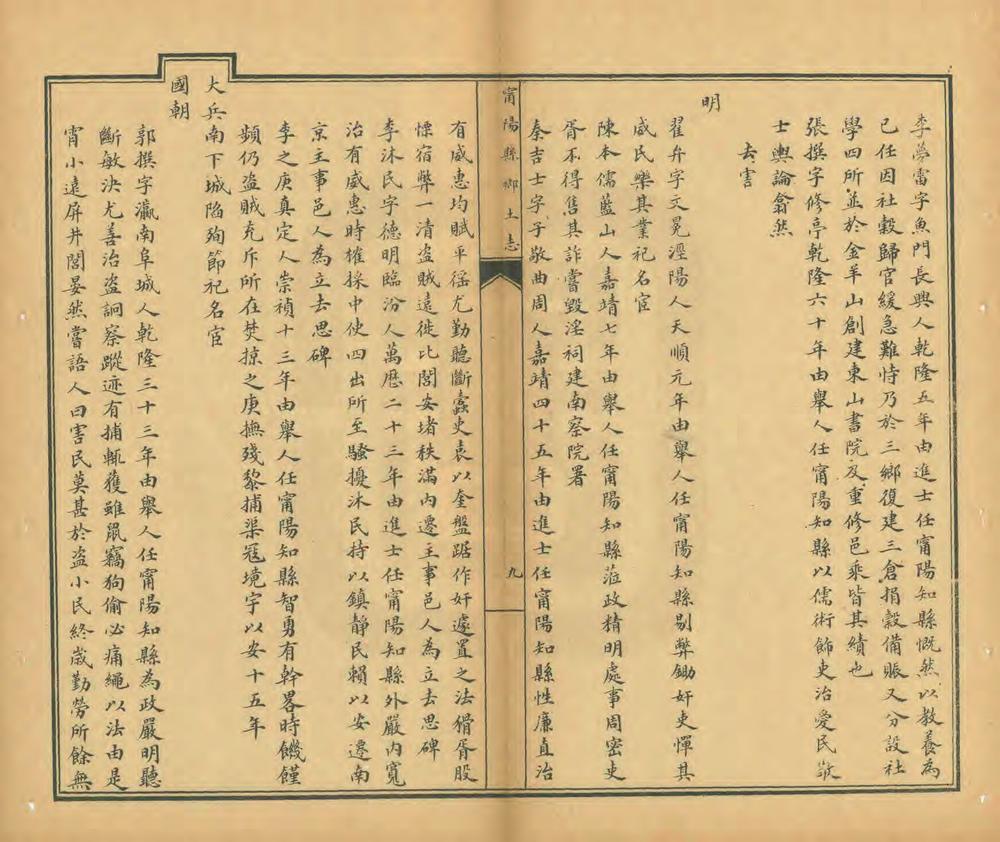 李夢雷字魚門長興人乾隆五年由進士任甯陽知縣慨然以教養為
己任因社穀歸官緩急難恃乃於三鄉復建三倉捐穀備賑又分設社
學四所並於金羊山創建東山書院及重修邑乘皆其績也
張撰字修亭乾隆六十年由舉人任甯陽知縣以儒術飾吏治愛民敬
士輿論翕然
去害
明
翟弁字文冕涇陽人天順元年由舉人任甯陽知縣剔弊鋤奸吏憚其
威民樂其業祀名宦
陳本儒藍山人嘉靖七年由舉人任甯陽知縣蒞政精明處事周密吏
胥不得售其詐嘗毀淫祠建南察院署
秦吉士字子敬曲周人嘉靖四十五年由進士任甯陽知縣性廉直治
甯陽縣鄉土志
九
有威惠均賦平徭尤勤聽斷蠹吏袁以奎盤踞作奸遽置之法猾胥股
慄宿弊一清盜賊遠徙比閭安堵秩滿內遷主事邑人為立去思碑
李沐民字德明臨汾人萬歷二十三年由進士任甯陽知縣外嚴內寬
治有威惠時榷採中使四出所至騷擾沐民持以鎮靜民賴以安遷南
京主事邑人為立去思碑
李之庚真定人崇禎十三年由舉人任甯陽知縣智勇有幹畧時饑饉
頻仍盜賊充斥所在焚掠之庚撫殘黎捕渠冦境宇以安十五年
大兵南下城陷殉節祀名宦
國朝
郭撰字瀛南阜城人乾隆三十三年由舉人任甯陽知縣為政嚴明聽
斷敏決尤善治盜詗察蹤迹有捕輒獲雖鼠竊狗偷必痛繩以法由是
宵小遠屏井閭晏然嘗語人曰害民莫甚於盜小民終歲勤勞所餘無